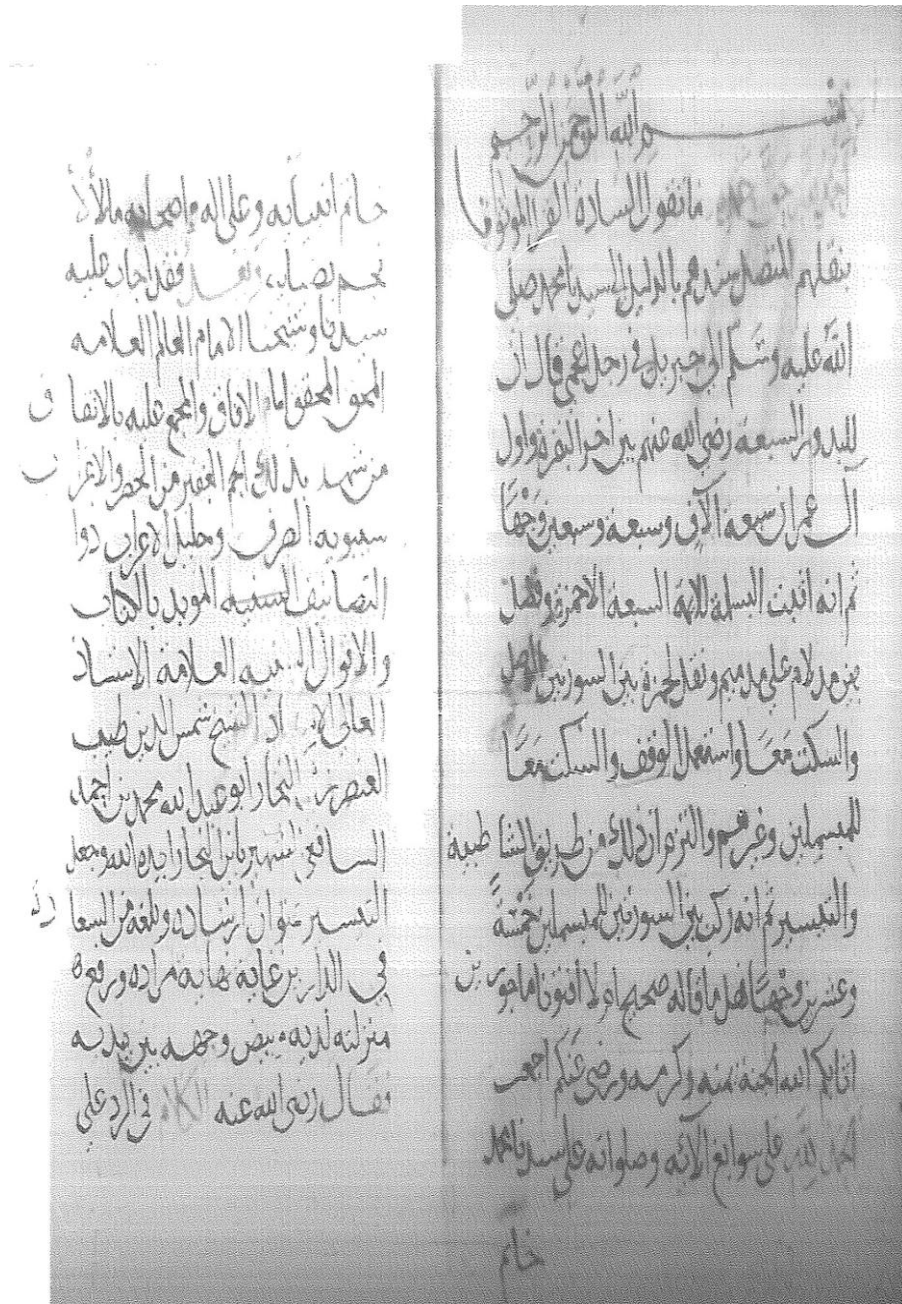 بسم الله الرحمن الرحيم
ما تقول السادة القرا الموثوق
بنقلهم المتصل سندهم بالدليل السيد محمد صلى
الله عليه وسلم الى جبريل في رجل اعجمي قال ان
للبدور السبعة رضي الله عنهم بين اخر البقرة واول
آل عمران سبعة آلاف وسبعة وسبعين وجها
ثم انه اثبت البسملة للايمة السبعة الا حمزة وفضل
بين مد لام على مد ميم ونقل لحمزة بين السورتين الوصل
والسكت معا واستعمل الوقف والسكت معا
للمبسملين وغيرهم والتزم ان ذلك من طريق الشاطبية
والتيسير ثم انه ركب بين السورتين للمبسملين خمسة
وعشرين وجها فهل ما قاله صحيح ام لا افتونا ماجورين
اثابكم الله الجنة بمنه وكرمه ورضي عنكم اجمعين
الحمد لله على سوابغ الائه وصلواته على سيدنا محمد
خاتم
خاتم انبيايه وعلى اله واصحابه ما لألأ
نجم بضيايه وبعد فقد اجاب عليه
سيدنا وشيخنا الامام العالم العلامه
المحقق امام الافاق والمجمع عليه بالاتفاق
من شهد بذلك الجم الغفير من الحضر والاعراب
سيبويه الصرف وخليل الاعراب ذوا
التصانيف السنيه المويد بالكتاب
والاقوال العلامة الاستاذ
العالي الشيخ شمس الدين طيب
العنصر النجار ابو عبد الله محمد بن احمد
الشافعي الشهير بابن النجار ايده الله وجعل
التيسير عنوان ارشاده وبلغه من السعادة
في الدارين غاية نهاية مراده ورفع
منزلته لديه وبيض وجهه بين يديه
فقال رضي الله عنه الكلام في الرد على